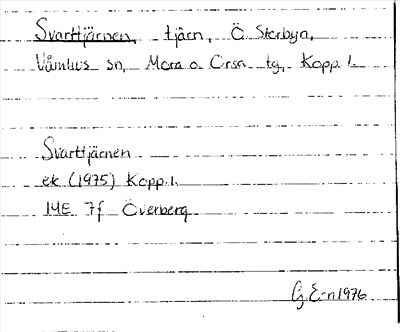 Svarttjärnen, tjärn, Ö Storbyn,
Våmhus sn, Mora o. Orsa tg, Kopp. l.
Svarttjärnen
ek (1975) Kopp. l.
14E 7f Överberg
G. E-n 1976